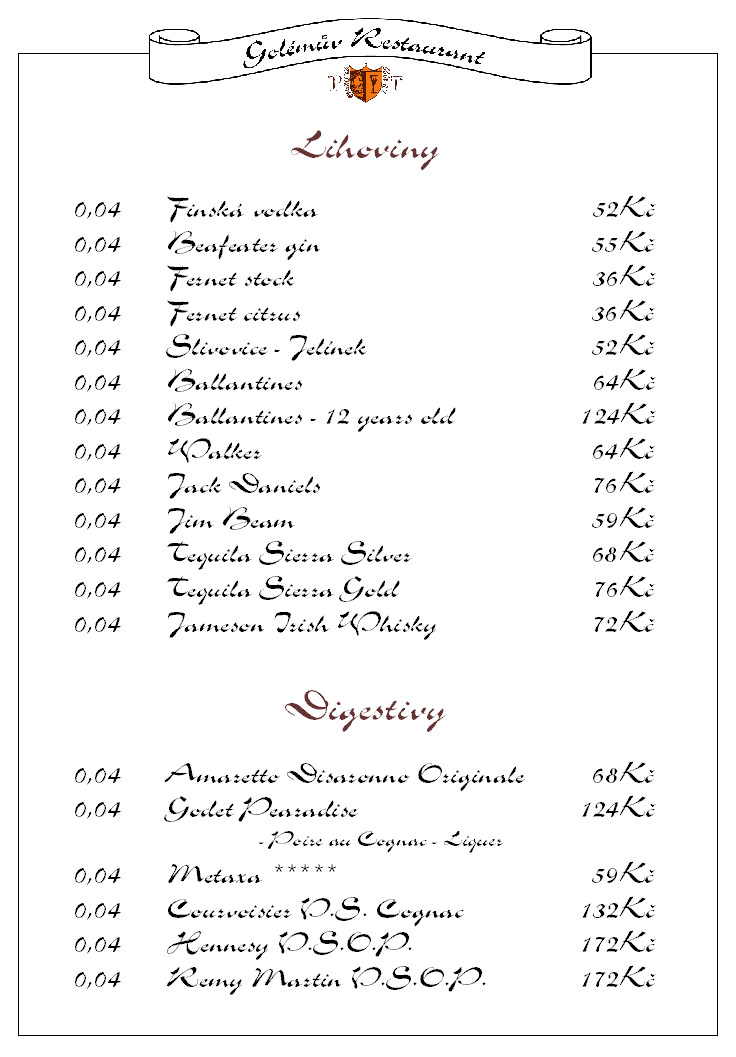 Golémův Restaurant
P T
Lihoviny
0,04 Finská vodka 52Kč
0,04 Beafeater gin 55Kč
0,04 Fernet stock 36Kč
0,04 Fernet citrus 36Kč
0,04 Slivovice - Jelínek 52Kč
0,04 Ballantines 64Kč
0,04 Ballantines - 12 years old 124Kč
0,04 Walker 64Kč
0,04 Jack Daniels 76Kč
0,04 Jim Beam 59Kč
0,04 Tequila Sierra Silver 68Kč
0,04 Tequila Sierra Gold 76Kč
0,04 Jameson Irish Whisky 72Kč
Digestivy
0,04 Amaretto Disaronno Originale 68Kč
0,04 Godet Pearadise 124Kč
- Poire au Cognac - Liquer
0,04 Metaxa ***** 59Kč
0,04 Courvoisier V.S. Cognac 132Kč
0,04 Hennesy V.S.O.P. 172Kč
0,04 Remy Martin V.S.O.P. 172Kč